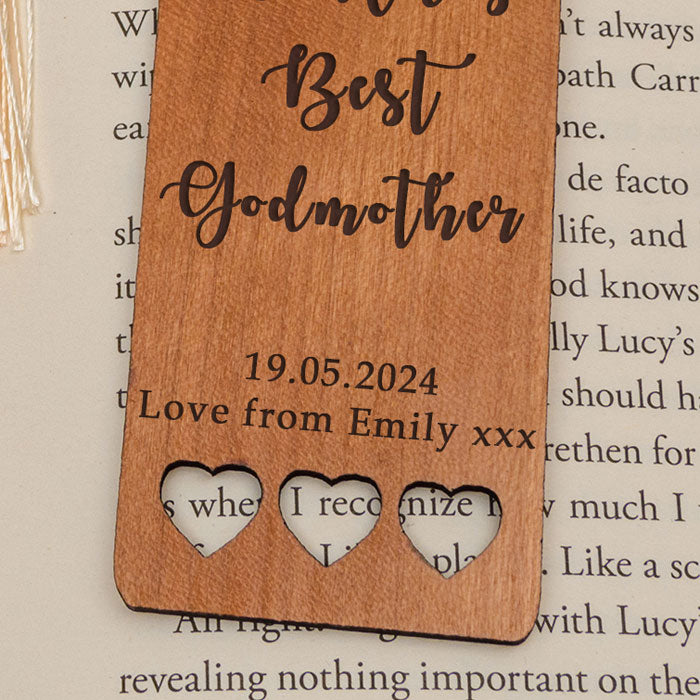 Best
Godmother
19.05.2024
Love from Emily xxx
't always
wi
ath Carr
ea
ne.
de facto
sh
life, and
it
od knows
lly Lucy's
t
should h
rethen for
s whe I reco nize
much I
I
pla
. Like a sc
All
with Lucy'
revealing nothing important on the